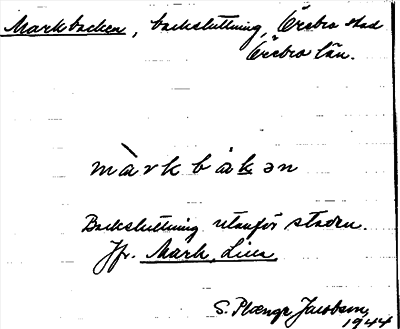 Markbacken, backsluttning, Örebro stad
Örebro län.
màrkbàkən
Backsluttning utanför staden.
Jfr. Mark, Lilla
S. Plænge Jacobson
1944